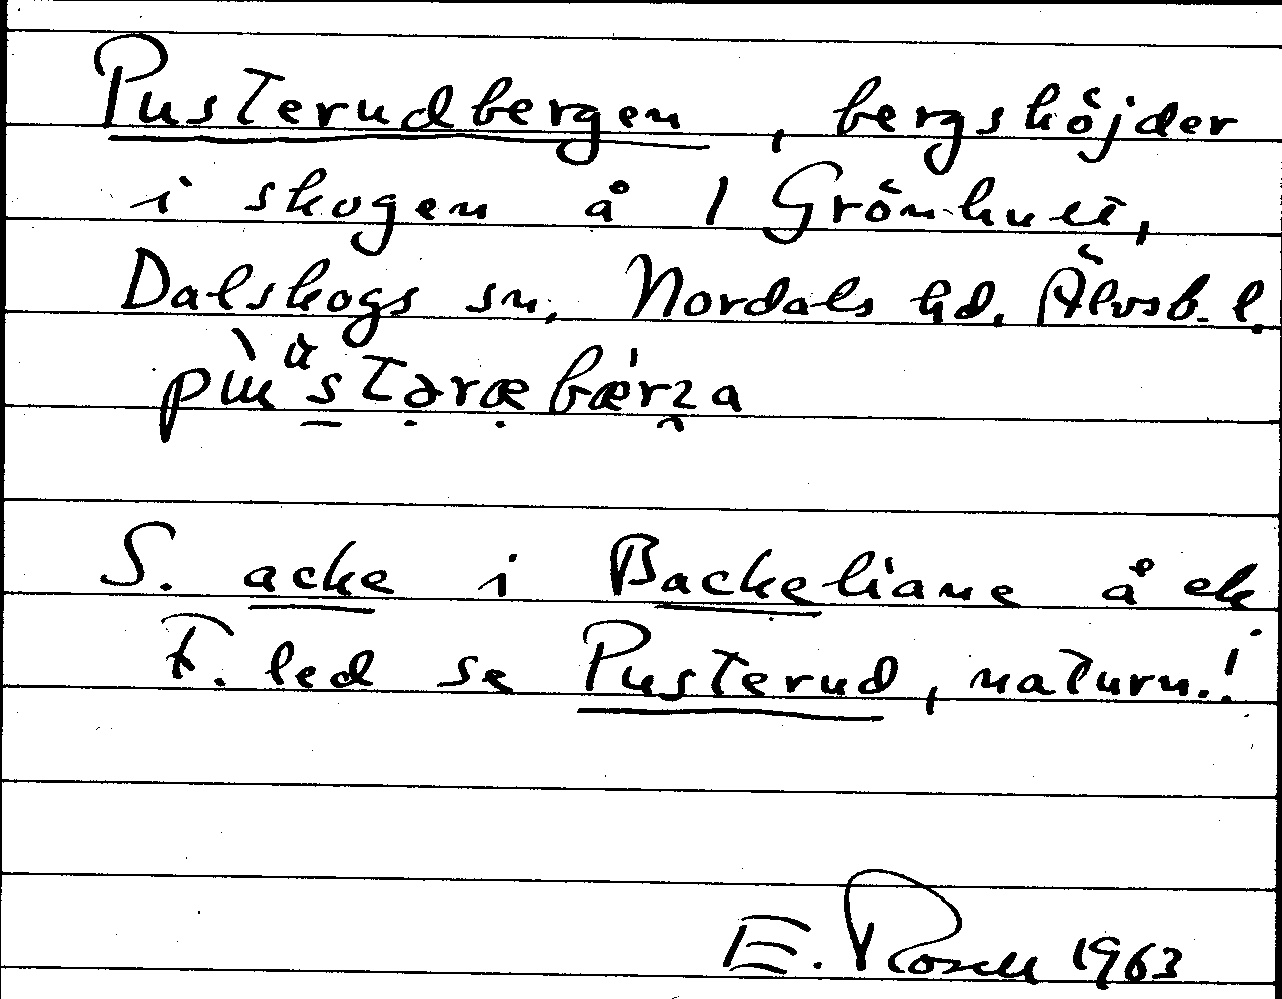 Pusterudbergen, bergshöjder
i skogen å 1 Grönhult,
Dalskogs sn, Nordals hd. Älvsb. l.
S. acke i Backeliane å ek
F. led se Pusterud, naturn.!
E. Rosell 1963